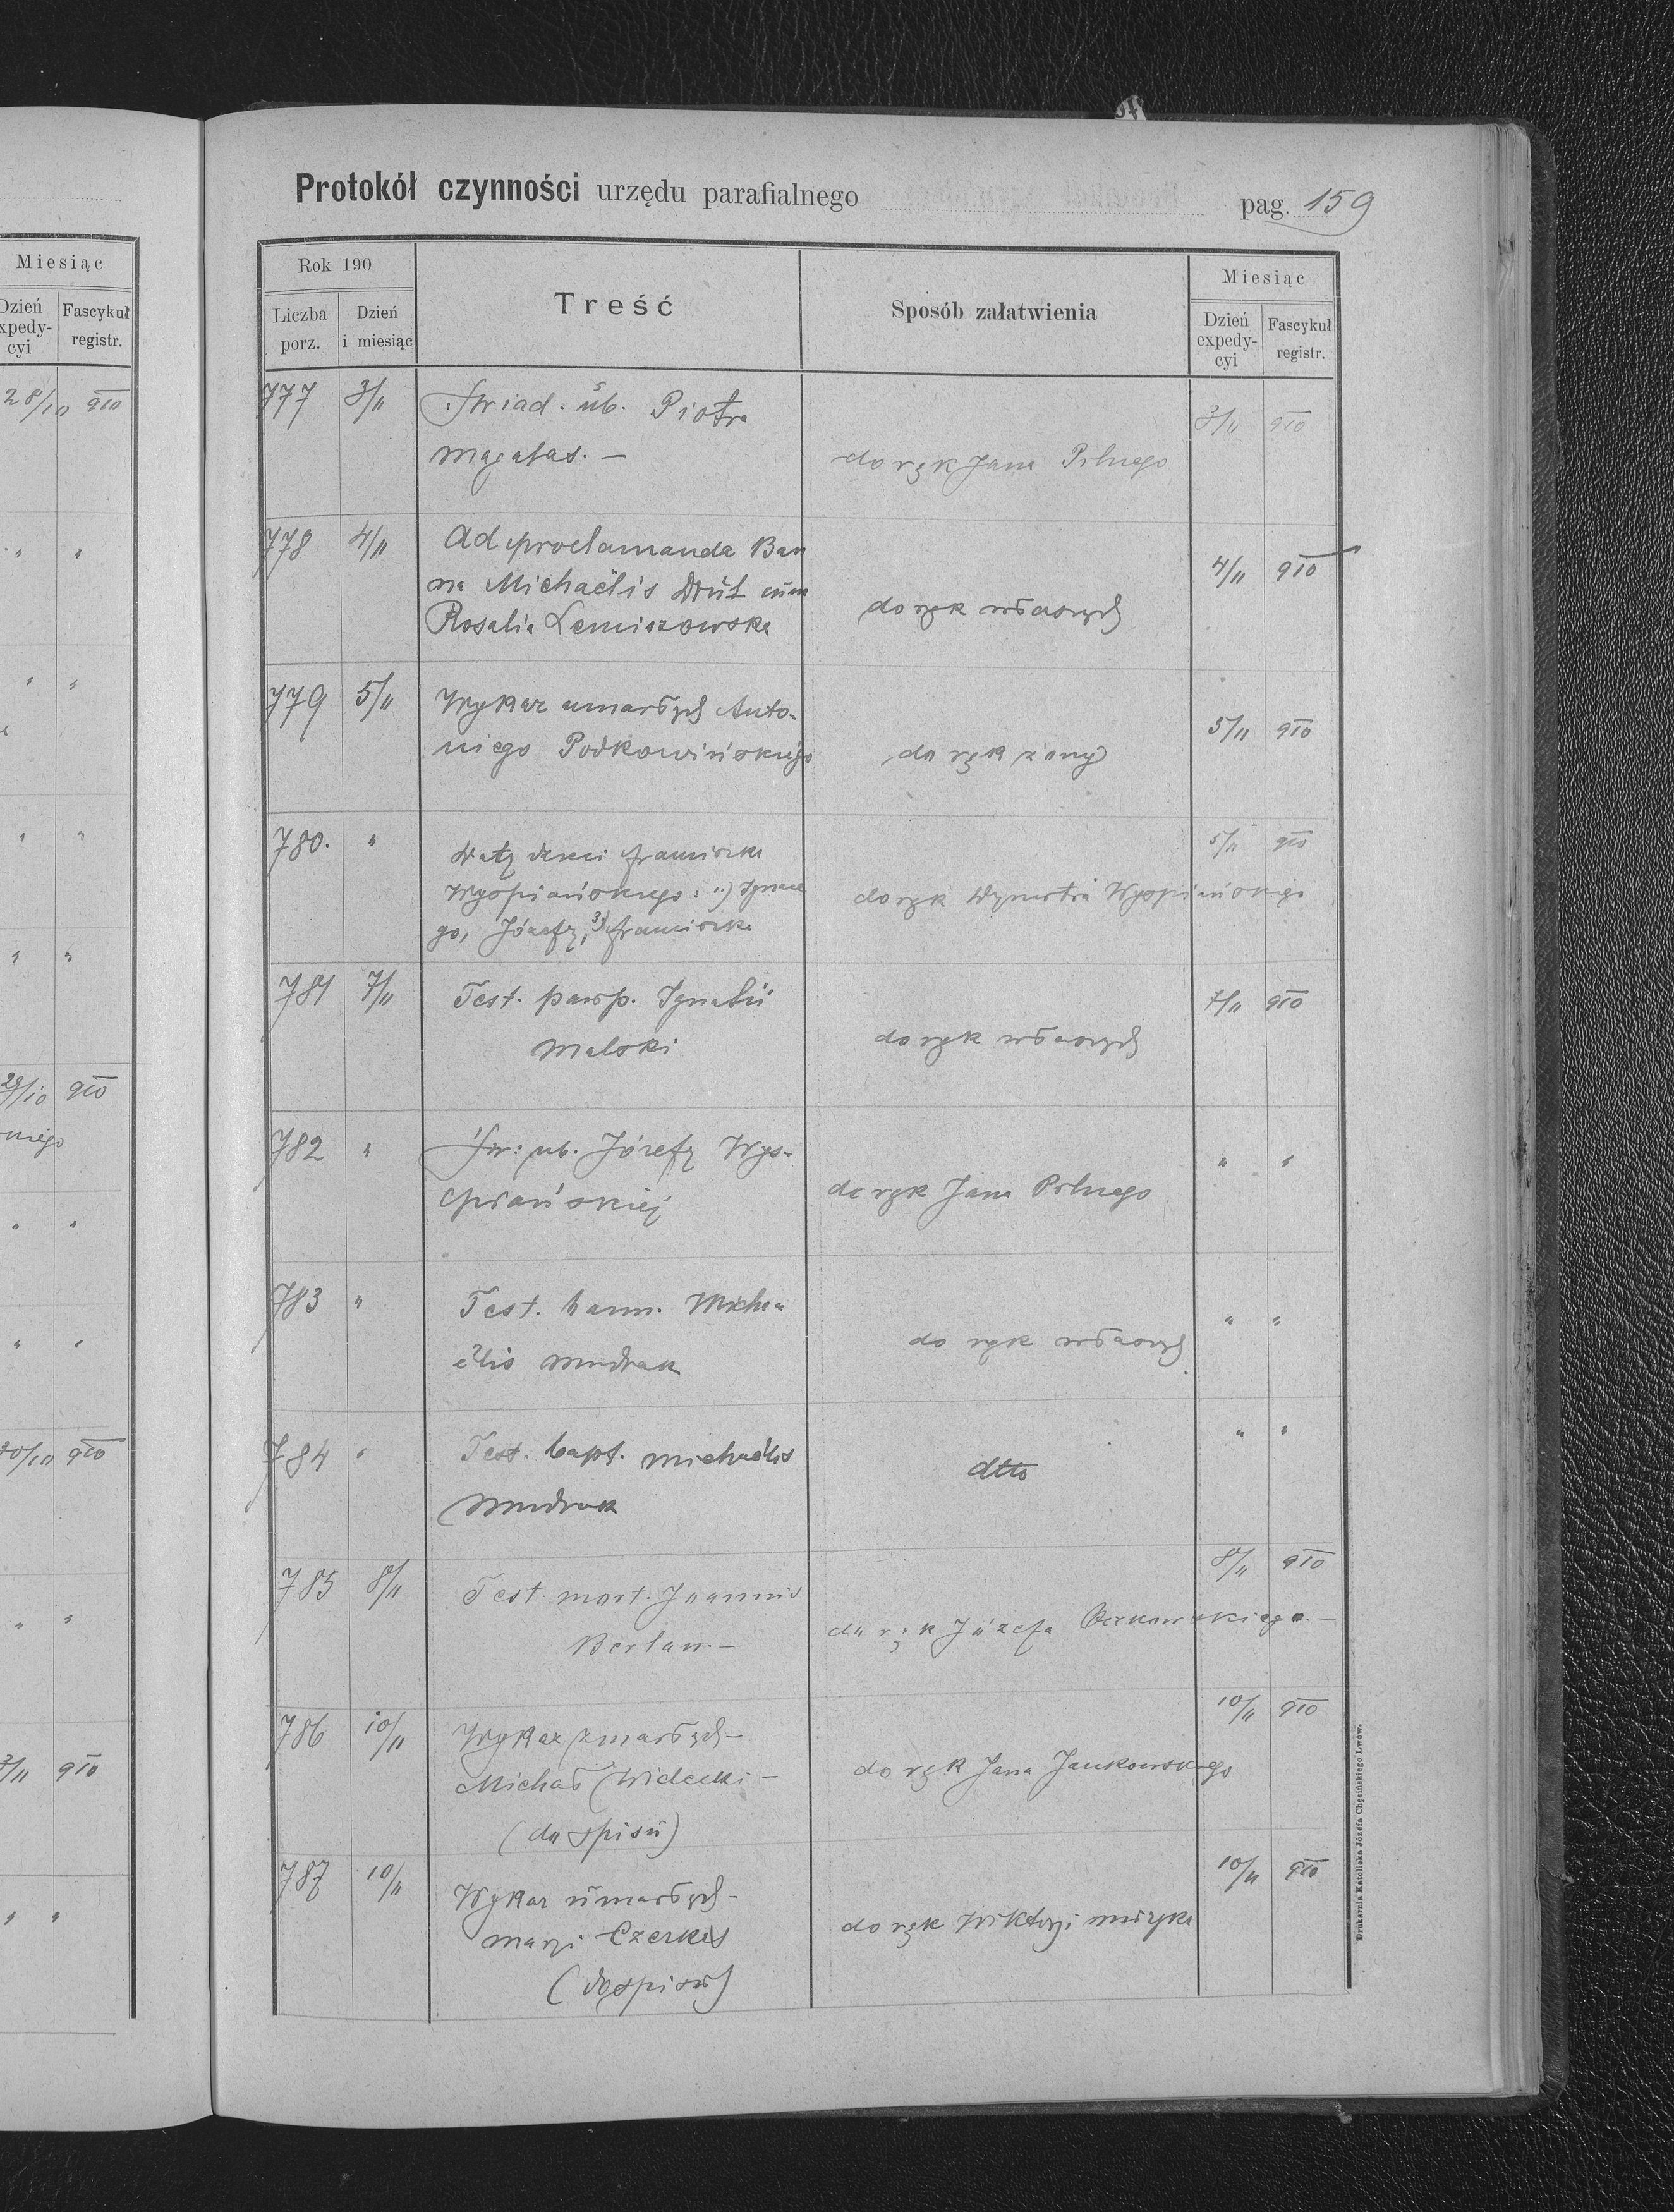 Protokół czynności urzędu parafialnego
pag. 159
Miesiąc
Dzień expedy-cyi
Fascykuł registr.
28/10 910
" "
" "
" "
" "
29/10 910
" "
" "
30/10 910
" "
3/11 910
" "
Rok 190
Liczba porz.
Dzień i miesiąc
Treść
Sposób załatwienia
Miesiąc
Dzień expedy-cyi
Fascykuł registr.
777 3/11 Świad. ub. Piotra
Magafas. —
do rąk Jana Pilnego
3/11 910
778 4/11 Ad proclamanda Ban
na Michaëlis Drut cum
Rosalia Lemiszowska
do rąk własnych
4/11 910
779 5/11 Wykaz umarłych Anto-
niego Podkowińskiego
do rąk żony
5/11 910
780. " Daty dzieci Franciszka
Wyspiańskiego: Ignace
go, Józefy, 3) Franciszka
do rąk Wyspiańskiego
5/11 910
781 7/11 Test. paup. Ignatii
Malski
do rąk własnych
7/11 910
782 " Św: ub. Józefy Wys-
piańskiej
do rąk Jana Pilnego
" "
783 " Test. bann. Micha-
ëlis Mudrak
do rąk własnych
" "
784 " Test. bapt. Michaëlis
Mudrak
dtto
" "
785 8/11 Test. mort. Joannis
Berlan. —
do rąk Józefa
8/11 910
786 10/11 Wykaz zmarłych —
Michał Widecki —
(do spisu)
do rąk Jana Jankowskiego
10/11 910
787 10/11 Wykaz umarłych —
Maryi Czerkas
(do spisu)
do rąk Wiktoryi Muzyka
10/11 910
Drukarnia Katolicka Józefa Chęcińskiego Lwów.